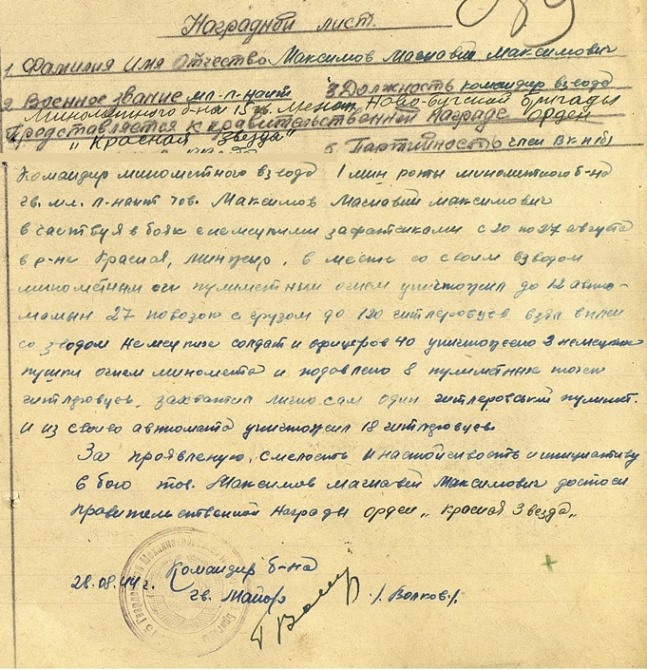 Наградной лист.
1 Фамилия Имя Отчество Максимов Магнавий Максимович
2 Военное звание мл. л-наит 3 Должность командир взвода
Минометного б-на 15 гв. Ново-бугской бригады
Представляется к правительственной Награде орден
„Красная Звезда"
5 Партийность член ВКП(б)
Командир минометного взвода 1 мин роты минометного б-на
гв. мл. л-наит тов. Максимов Магнавий Максимович
в боях с немецкими с 20 по 27 августа
в р-не Красная, в месте со своим взводом
минометным пулиметным огнем уничтожил до 12 авто-
машин 27 повозок с грузом до 120 гитлеровцев взял в плен
со взводом немецких солдат и офицеров 40 уничтожено 3 немецких
пушки огнем миномета и подавлено 8 пулиметных точек
гитлеровцев, захватил лично сам один гитлеровский пулимет.
и из своего автомата уничтожил 18 гитлеровцев
За проявленую, смелость и настойчивость и инициативу
в бою тов. Максимов Магнавий Максимович достоен
правительственной Награды орден „Красная Звезда„
28.08.44 г. Командир б-на
гв. Майор /. Волков./.